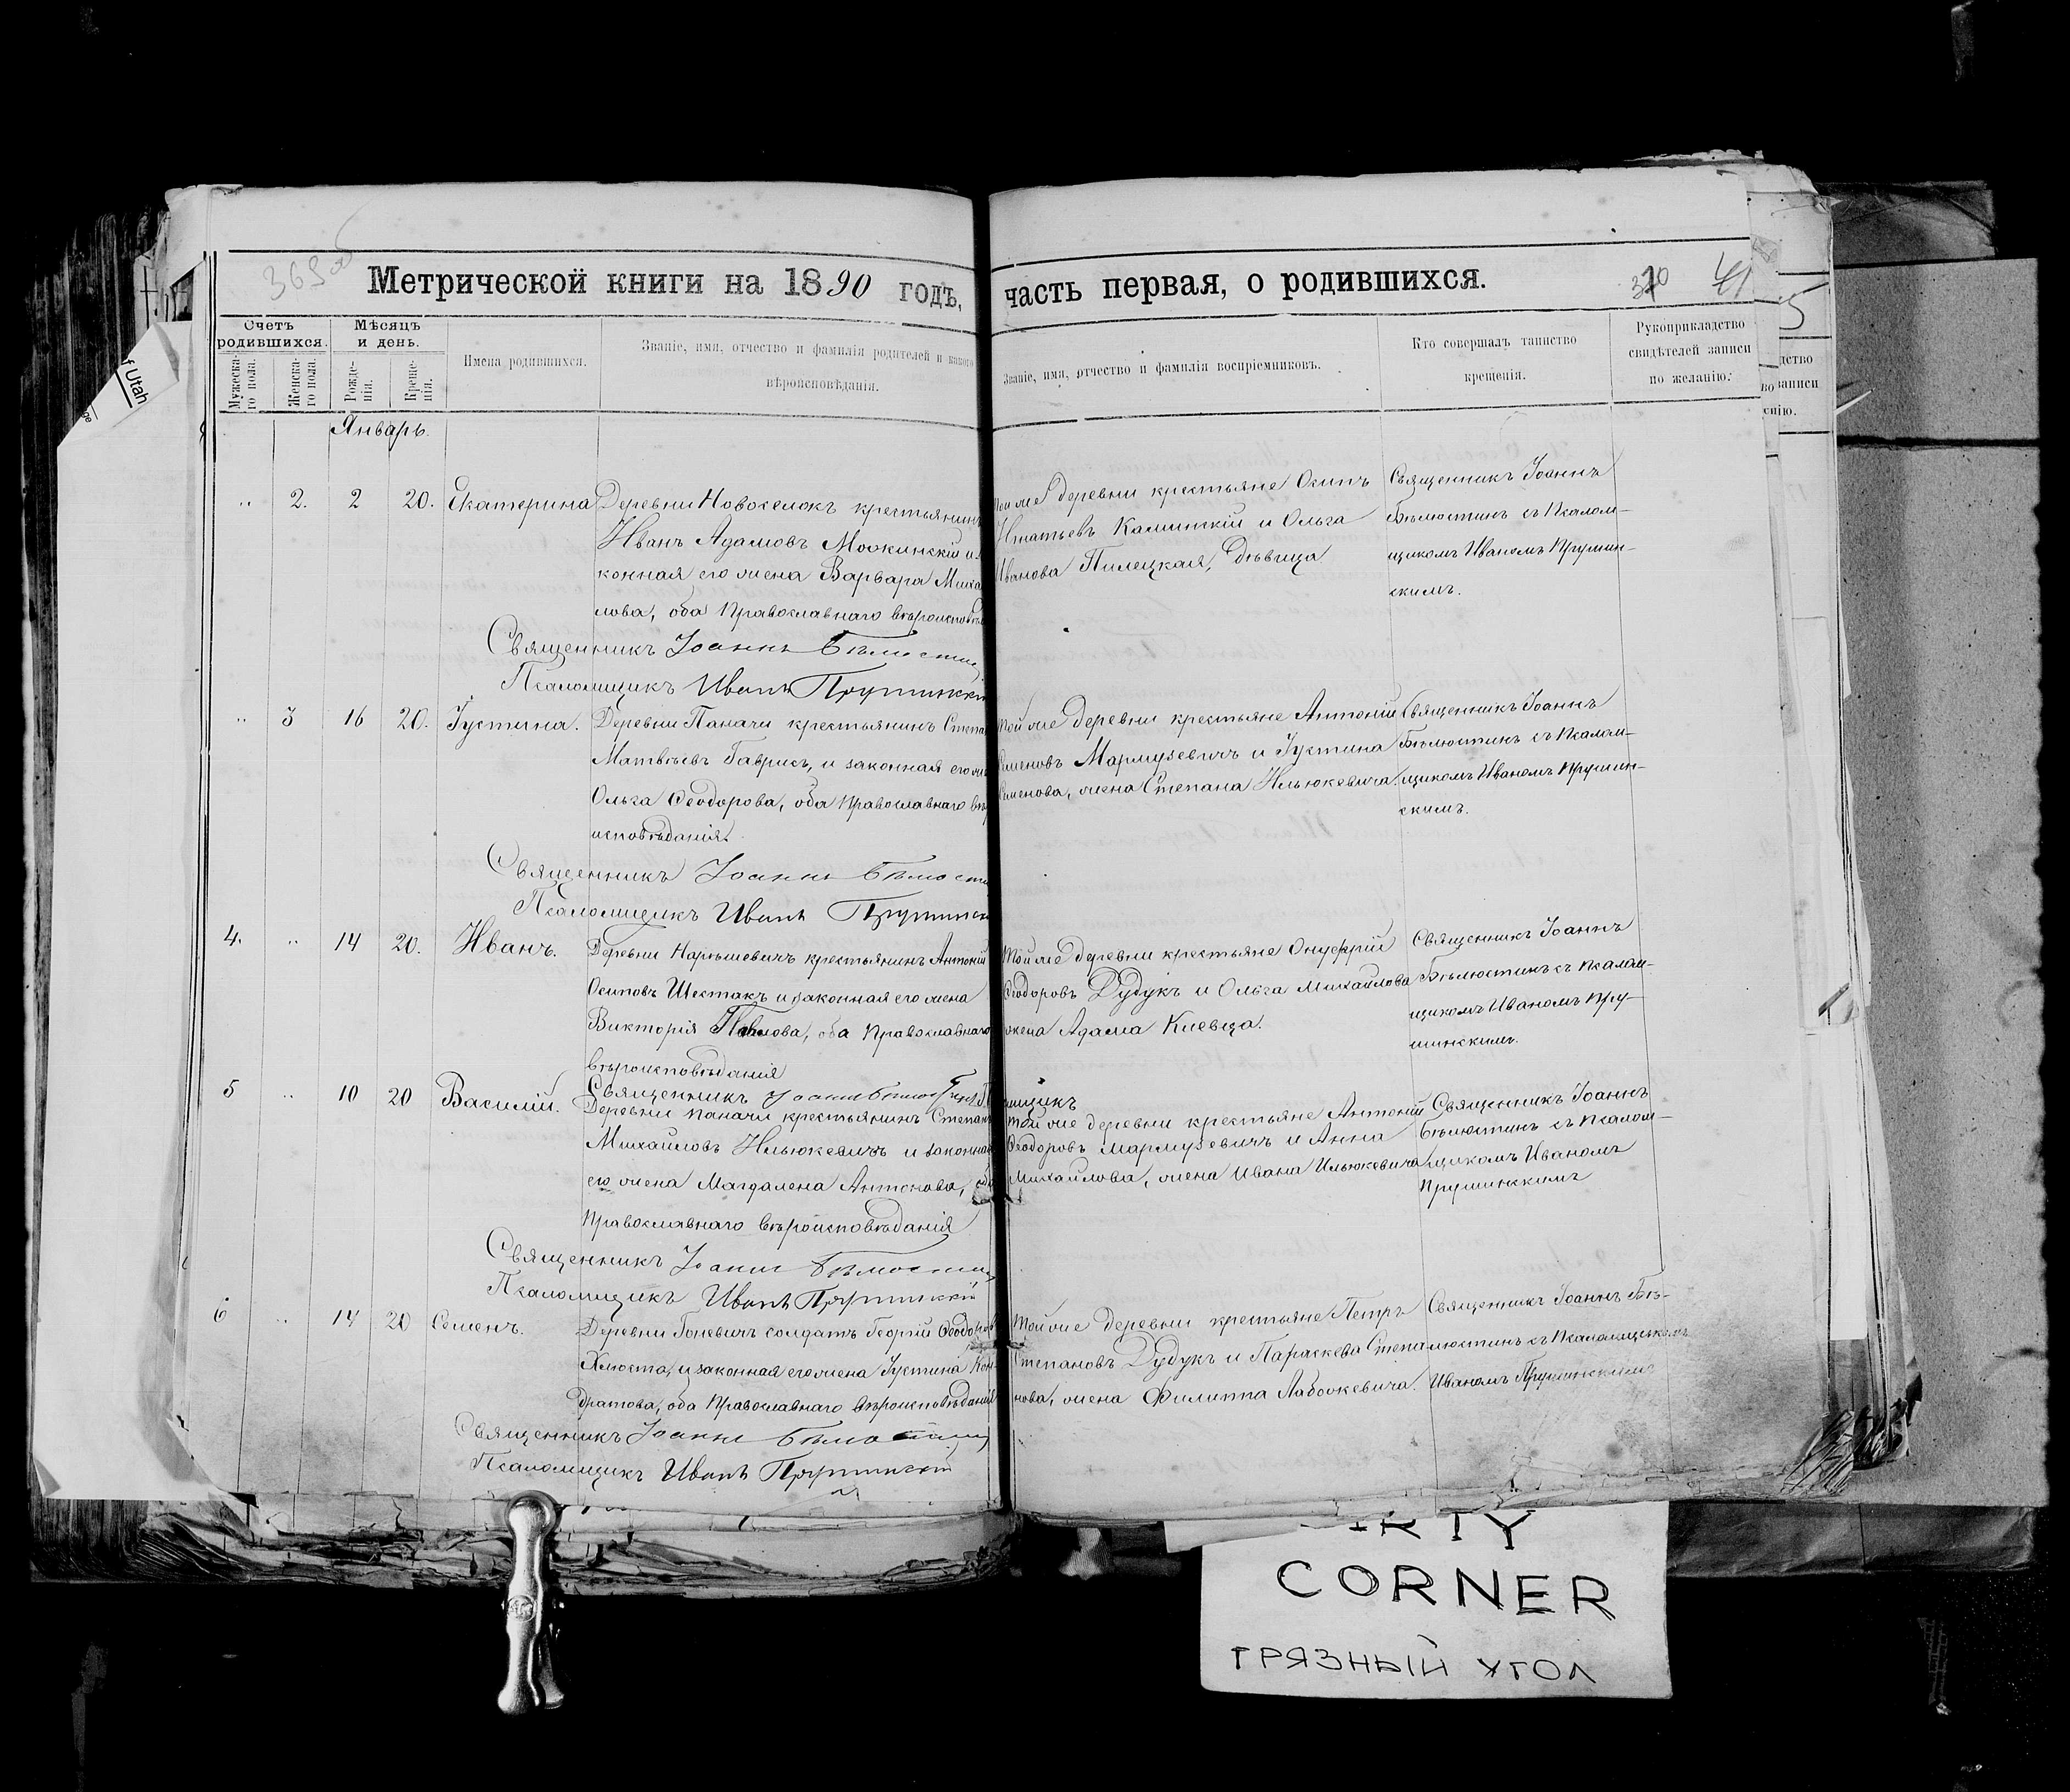 Метрической книги на 1890 годъ, часть первая, о родившихся.
370 41
Счетъ родившихся.
Мѣсяцъ и день.
Мужеска-го пола.
Женска-го пола.
Рожде-нія.
Креще-нія.
Имена родившихся.
Званіе, имя, отчество и фамилія родителей и какого
вѣроисповѣданія.
Званіе, имя, отчество и фамилія воспріемниковъ.
Кто совершалъ таинство
крещенія.
Рукоприкладство
свидѣтелей записи
по желанію.
Январь.
„ 2. 2 20. Екатерина
Деревни Новоселокъ крестьянинъ
Иванъ Адамовъ и за
конная его жена Варвара Миха
лова, оба Православнаго вѣроисповѣд
Той же деревни крестьяне Осипъ
Игнатьевъ Каминскій и Ольга
Иванова Пилецкая, дѣвица
Священникъ Іоаннъ
Бѣлюстинъ съ Псалом-
щикомъ Иваномъ Прушин-
скимъ.
Священникъ Іоаннъ Бѣлюстин
Псаломщикъ Иванъ Прушинскій
„ 3 16 20. Іустина.
Деревни Паначи крестьянинъ Степа
Матвѣевъ Гаврисъ, и законная его ж
Ольга Ѳеодорова, оба Православнаго вѣр
исповѣданія.
Той же деревни крестьяне Антоній
Семеновъ Мармузевичъ и Іустина
Семенова, жена Степана Ильюкевича.
Священникъ Іоаннъ
Бѣлюстинъ съ Псалом-
щикомъ Иваномъ Прушин-
скимъ.
Священникъ Іоаннъ Бѣлюстин
Псаломщикъ Иванъ Прушинск
4. „ 14 20. Иванъ.
Деревни крестьянинъ Антоній
Осиповъ Шестакъ и законная его жена
Викторія Павлова, оба Православнаго
вѣроисповѣданія
Той же деревни крестьяне Онуфрій
Ѳеодоровъ Дудукъ и Ольга Михайлова
жена Адама Киевца.
Священникъ Іоаннъ
Бѣлюстинъ съ Псалом-
щикомъ Иваномъ Пру-
шинскимъ.
Священникъ Іоаннъ Бѣлюстинъ
5 „ 10 20 Василій.
Деревни Паначи крестьянинъ Степанъ
Михайловъ Ильюкевичъ и законная
его жена Магдалена Антонова, оба
Православнаго вѣроисповѣданія
Той же деревни крестьяне Антоній
Ѳеодоровъ Мармузевичъ и Анна
Михайлова, жена Ивана Ильюкевича
Священникъ Іоаннъ
Бѣлюстинъ съ Псалом-
щикомъ Иваномъ
Прушинскимъ
Священникъ Іоаннъ Бѣлюстин
Псаломщикъ Иванъ Прушинскій
6 „ 14 20 Семенъ.
Деревни Гоневичъ солдатъ Георгій Ѳеодоровъ
Хлюста, и законная его жена Іустина Кон-
дратова, оба Православнаго вѣроисповѣданія
Той же деревни крестьяне Петръ
Степановъ Дудукъ и Параскева Степа
нова, жена Филиппа
Священникъ Іоаннъ Бѣ-
люстинъ съ Псаломщикомъ
Иваномъ Прушинскимъ
Священникъ Іоаннъ Бѣлюстин
Псаломщикъ Иванъ Прушинскій
CORNER
ГРЯЗНЫЙ УГОЛ
f Utah